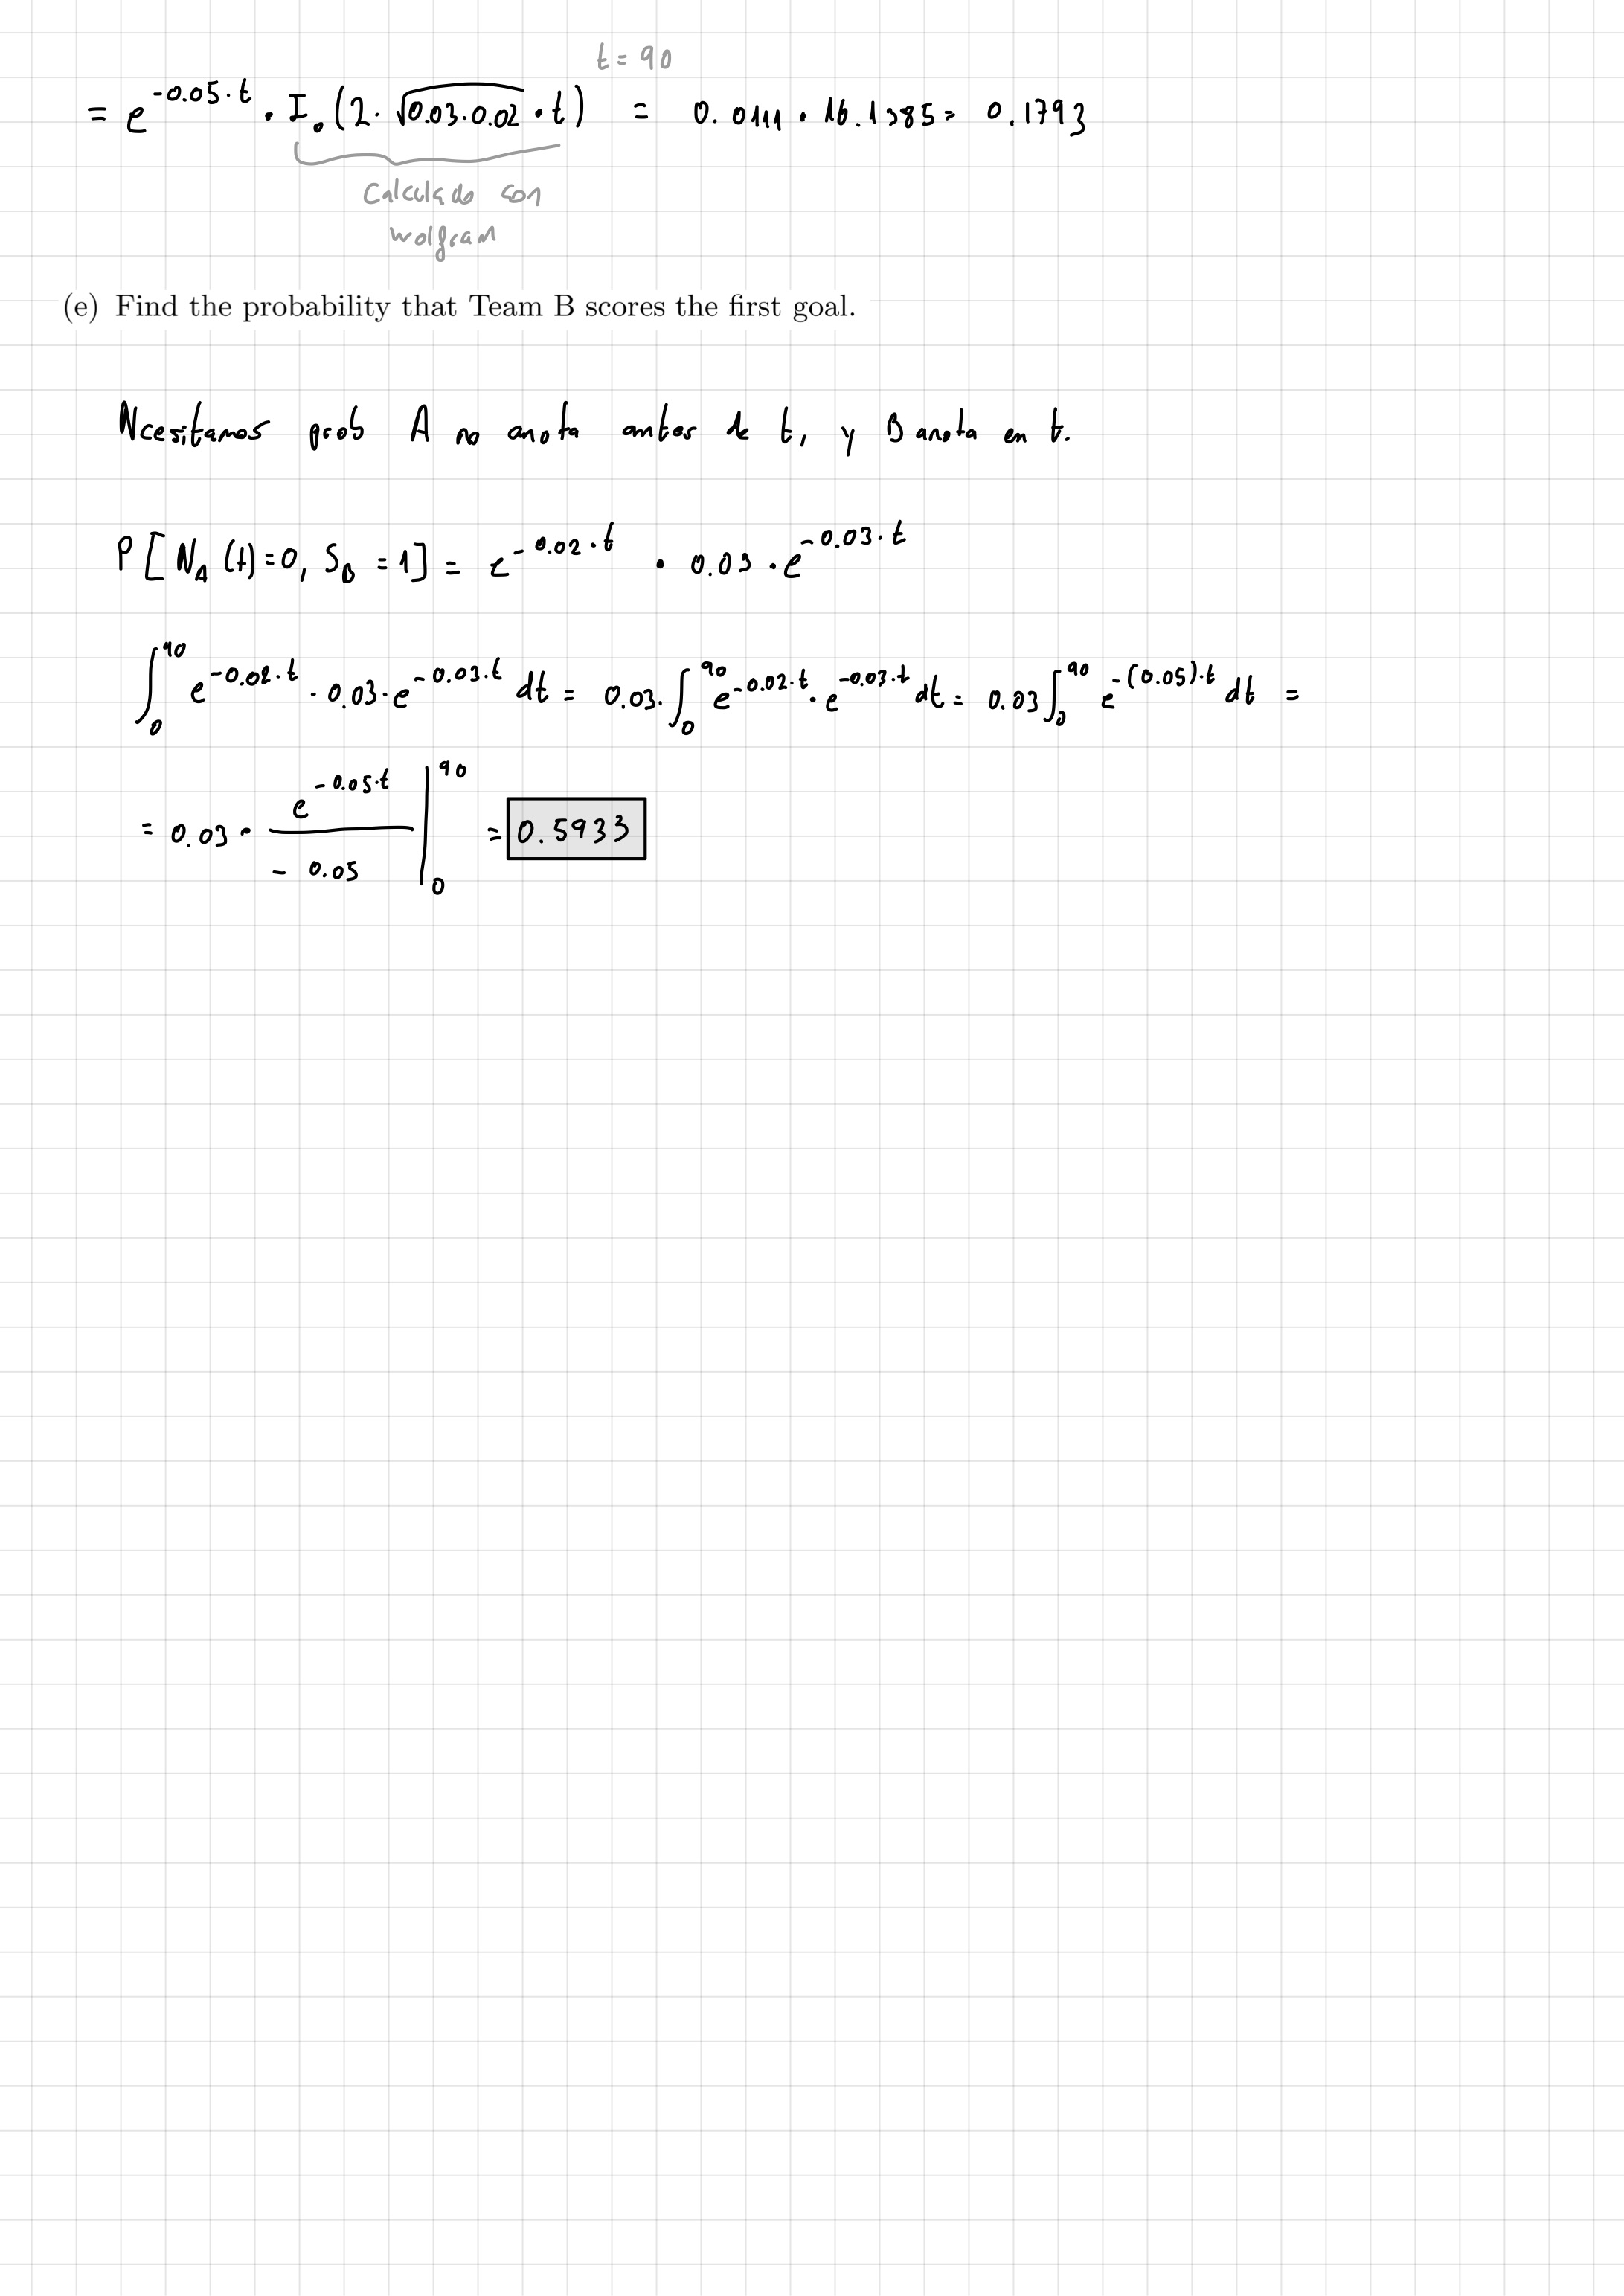 t = 90
= e^{-0.05·t} · I_0 (2·√(0.03·0.02)·t) = 0.0111 · 16.1385 = 0.1793
Calculado con
wolfram
(e) Find the probability that Team B scores the first goal.
Necesitamos prob A no anota antes de t, y B anota en t.
P[N_A(t)=0, S_B=1] = e^{-0.02·t} · 0.03·e^{-0.03·t}
∫_0^{90} e^{-0.02·t} · 0.03·e^{-0.03·t} dt = 0.03·∫_0^{90} e^{-0.02·t}·e^{-0.03·t} dt = 0.03 ∫_0^{90} e^{-(0.05)·t} dt =
= 0.03 · e^{-0.05·t} / -0.05 |_0^{90} = 0.5933